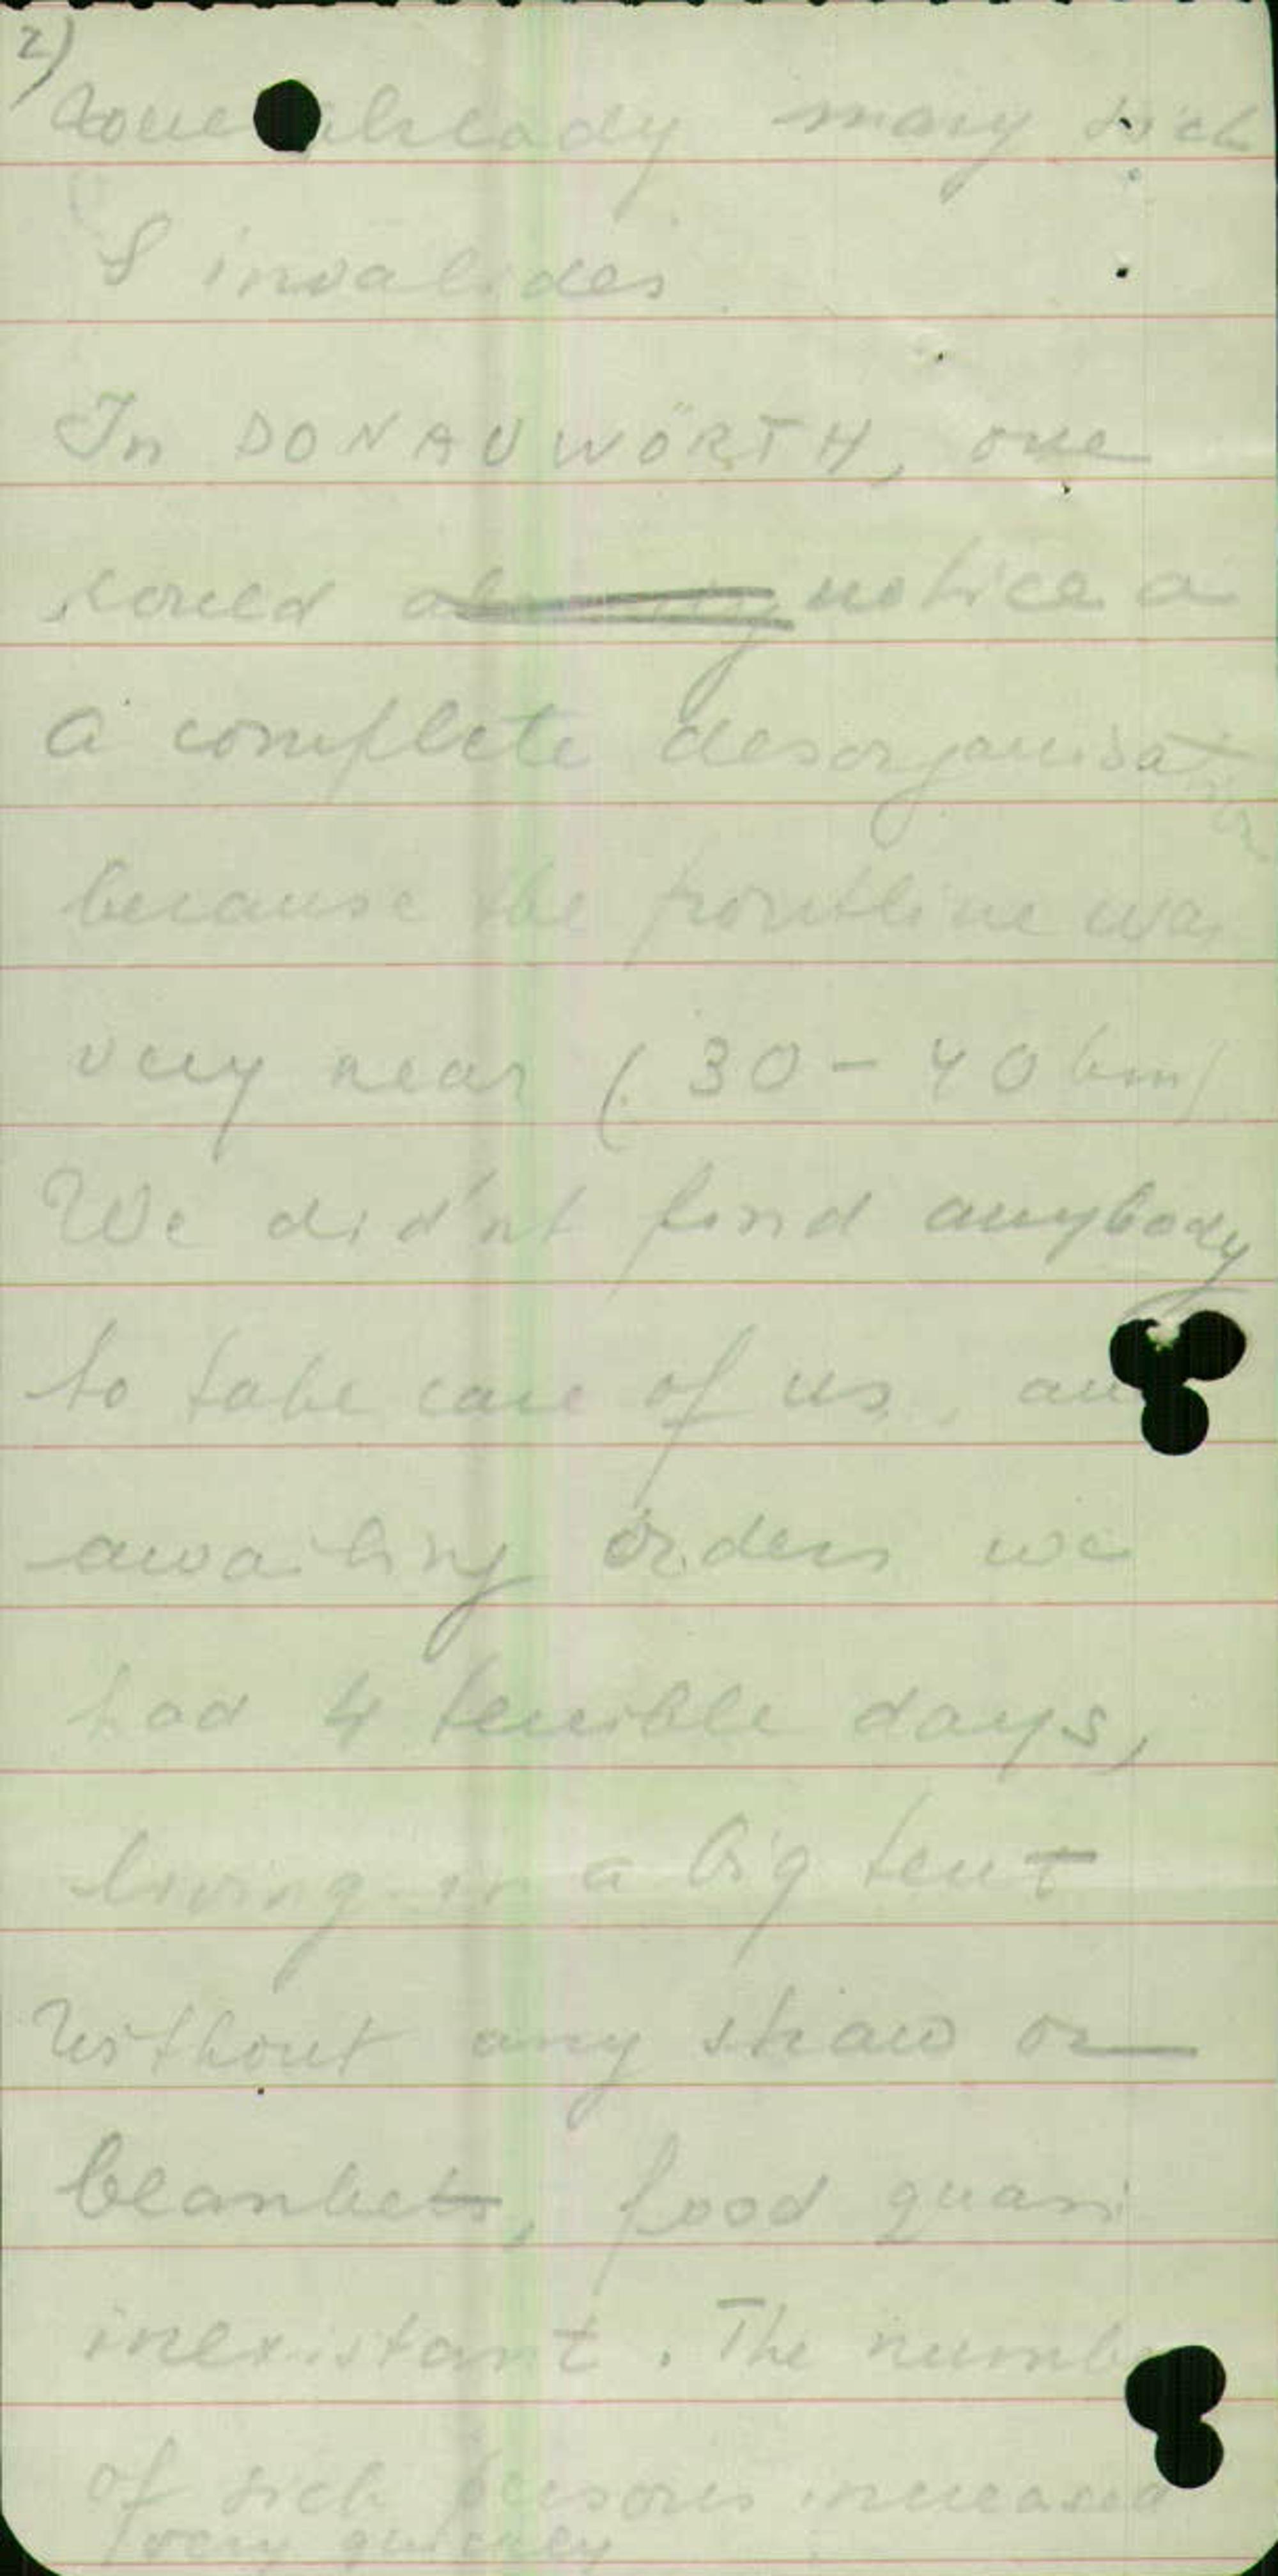 2)
already many sick
& invalides
In DONAUWÖRTH, one
could notice a
a complete desorganisation
because the frontline was
very near (30 - 40 km)
We did'nt find anybody
to take care of us, and
awaiting orders we
had 4 terrible days,
living in a big tent
Without any straw or
blankets, food quasi
inexistant. The number
of sick persons increased
very quickly